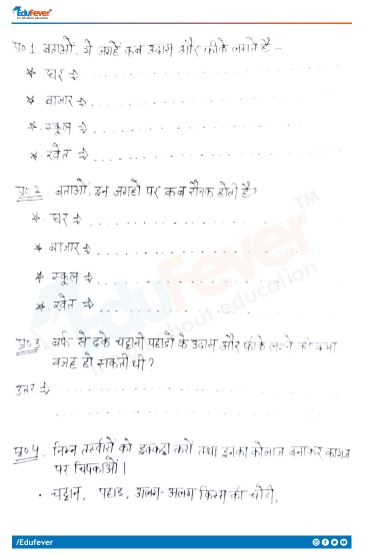 EduFever
प्र० 1 बताओ, ये जगहें कब उदास और फीके लगते है -
* घर ⇒ ....................
* बाजार ⇒ ....................
* स्कूल ⇒ ....................
* खेत ⇒ ....................
प्र० 2. बताओं, इन जगहों पर कब रौनक होती है?
* घर ⇒ ....................
* बाजार ⇒ ....................
* स्कूल ⇒ ....................
* खेत ⇒ ....................
प्र० 3. बर्फ से ढके चट्टानी पहाडों के उदास और फीके लगने की क्या
वजह हो सकती थी?
उत्तर ⇒ ....................
....................
प्र० 4. निम्न तस्वीरों को इक्कठ्ठा करों तथा इनका कोलाज बनाकर कागज
पर चिपकाओं।
• चट्टान, पहाड, अलग-अलग किस्म की चोटी,
EduFever
TM
about education
/Edufever